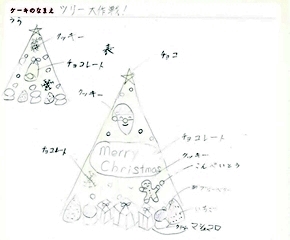 ケーキのなまえ ツリー大作戦!
うら
クッキー
チョコ
チョコレート
クッキー
チョコレート
チョコレート
Merry
Christmas
クッキー
こんぺいとう
いちご
マシュマロ